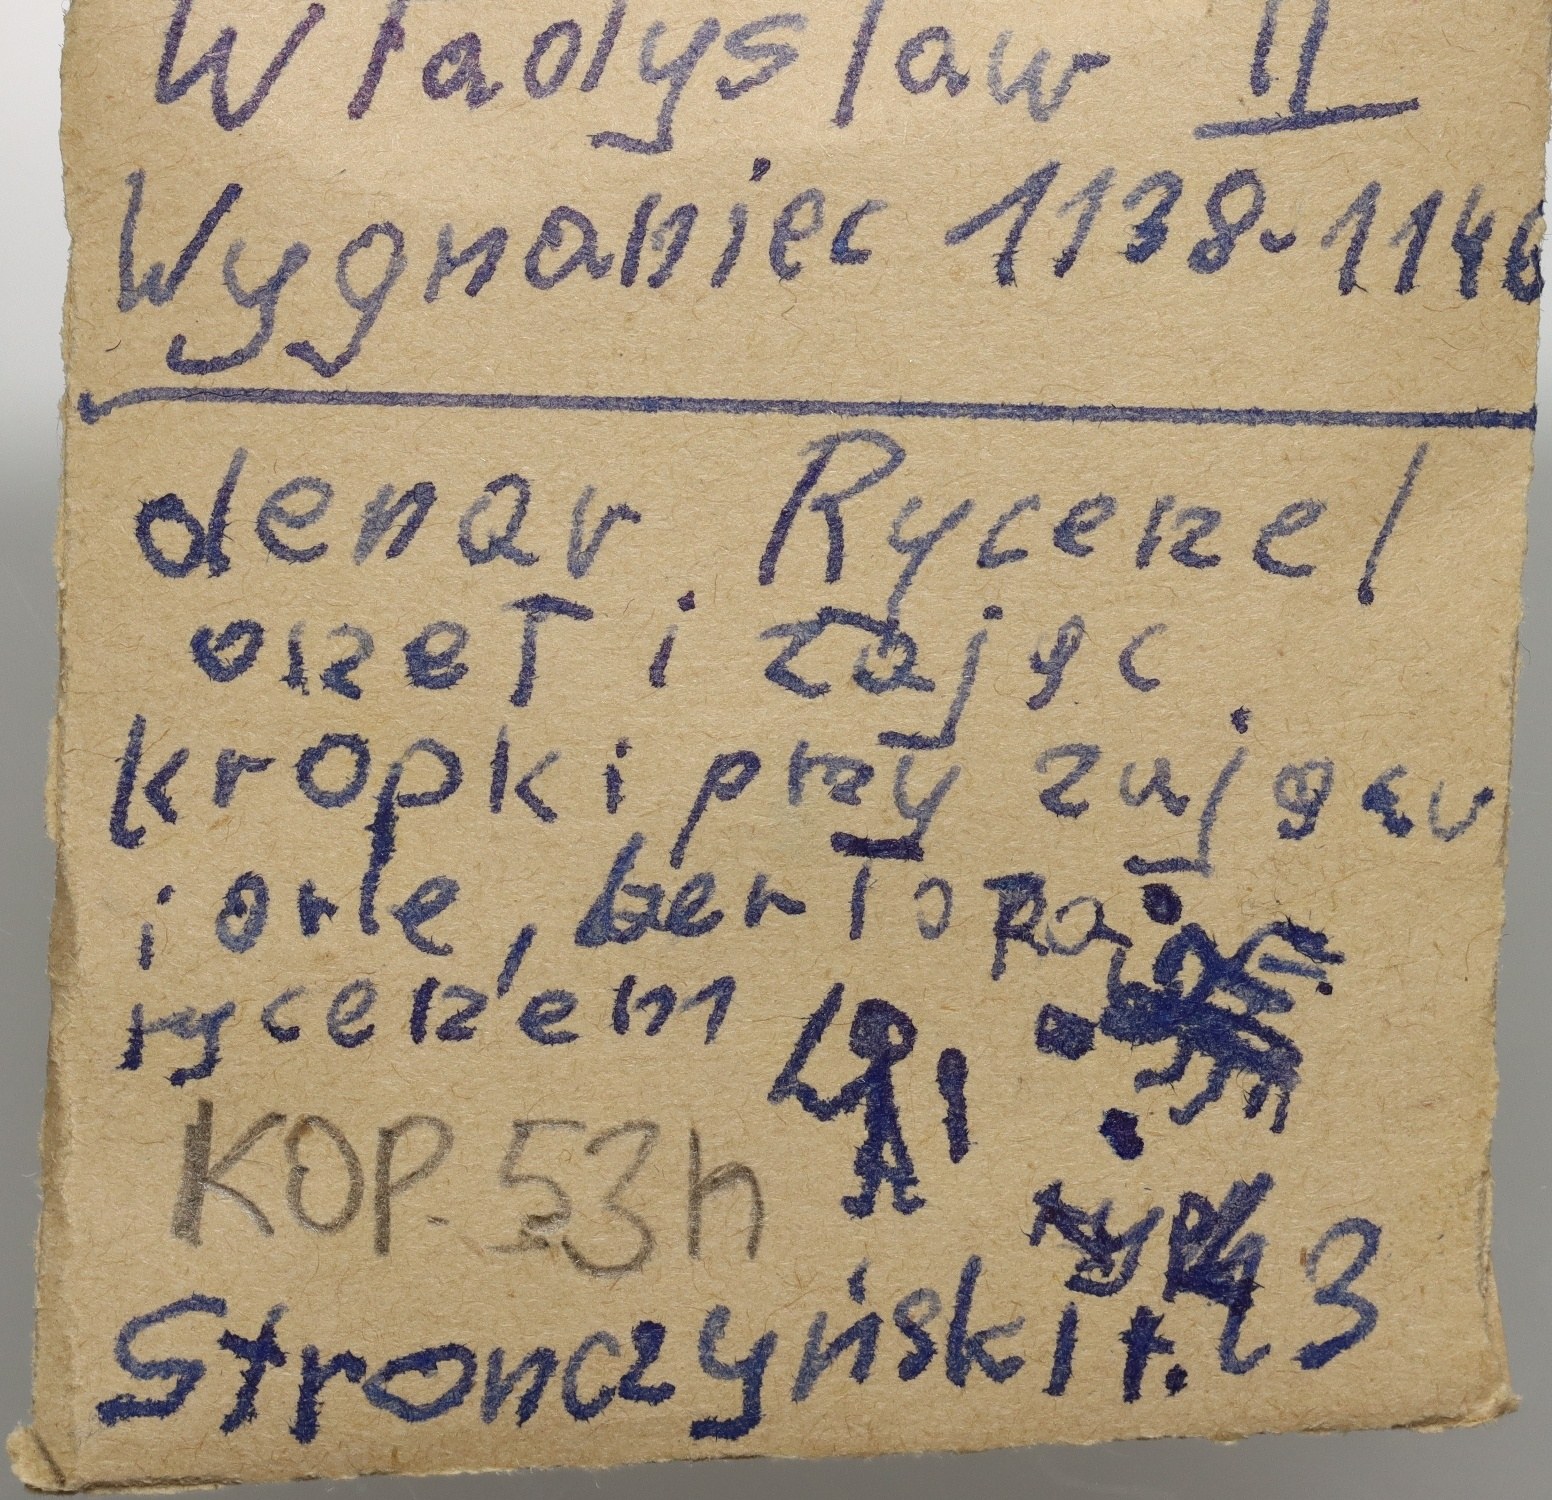 Władysław II
Wygnaniec 1138-1146
denar Rycerze/
orzeł i zając
kropki przy zającu
i orle, berło za
rycerzem
KOP. 53h
typ
Stronczyński t. 43